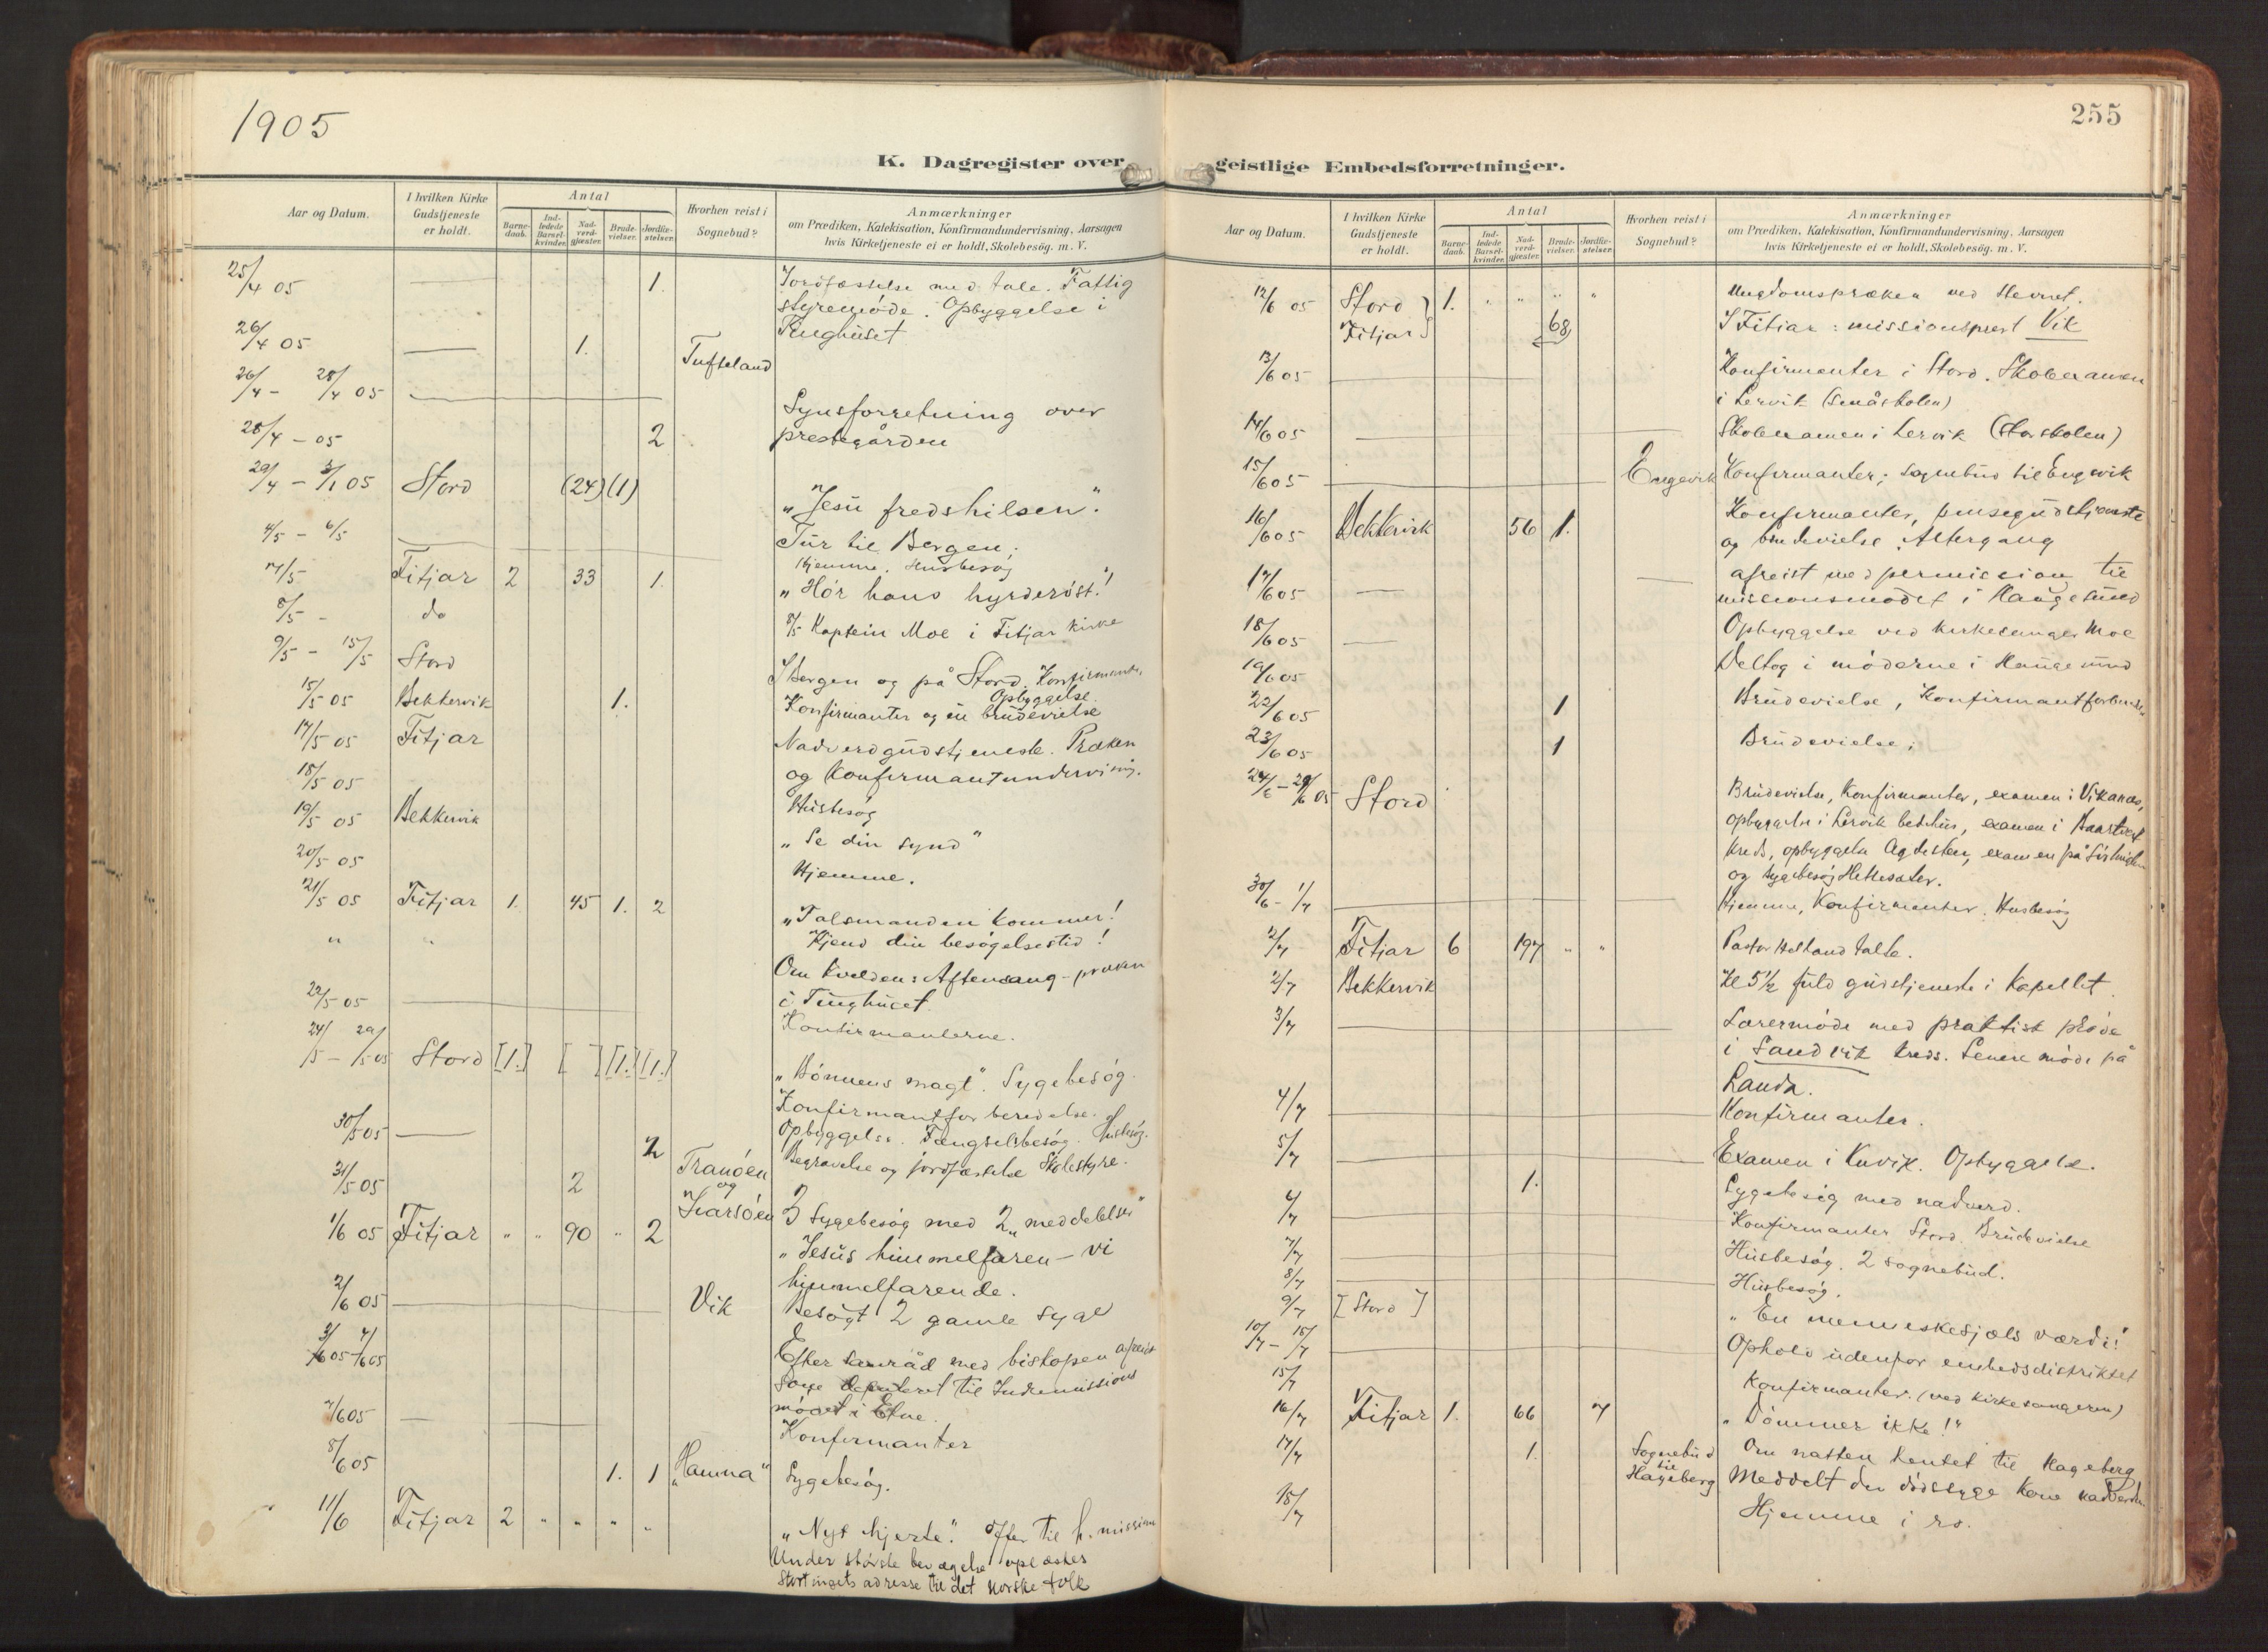 1905
K. Dagregister over
Aar og Datum.
I hvilken Kirke Gudstjeneste er holdt.
Antal
Barne-daab.
Ind-ledede Barsel-kvinder.
Nad-verd-gjæster.
Brude-vielser.
Jordfæ-stelser.
Hvorhen reist i Sognebud?
Anmærkninger
om Prædiken, Katekisation, Konfirmandundervisning, Aarsagen
hvis Kirketjeneste ei er holdt, Skolebesög. m. V.
25/4 05 1. Jordfæstelse med tale. Fattig
styremøde. Opbyggelse i
Tinghuset
26/4 05 1. Tufteland
26/4 - 28/4 05 Synsforretning over
28/4 - 05 2 prestegården
29/4 - 3/5 05 Stord (24) (1) „Jesu fredshilsen".
4/5 - 6/5 Tur til Bergen;
Hjemme. Husbesøg
7/5 - Fitjar 2 33 1. „Hør hans hyrderøst!"
8/5 - do 8/5 Kaptein Moe i Fitjar kirke
9/5 - 15/5 Stord I Bergen og på Stord. Konfirmanter.
Opbyggelse.
15/5 05 Bekkervik 1. Konfirmanter og en brudevielse
17/5 05 Fitjar Nadverdgudstjeneste. Præken
18/5 05 og Konfirmantundervisning.
19/5 05 Bekkervik Husbesøg
„Se din synd"
20/5 05 Hjemme.
21/5 05 Fitjar 1. 45 1. 2 „Talsmanden kommer!
" " Kjend din besøgelsestid!
Om kvelden: Aftensang - præken
i Tinghuset.
22/5 05 Konfirmanterne.
24/5 - 29/5 05 Stord [1.] [ ] [1.] [1.] „Bønnens magt". Sygebesøg.
Konfirmantforberedelse.
Opbyggelse. Fængselsbesøg. Husbesøg.
30/5 05 2 Begravelse og jordfæstelse Skolestyre.
31/5 05 2 Tranøen
og
Ivarsøen 3 Sygebesøg med 2 „meddelelser"
1/6 05 Fitjar " " 90 " 2 „Jesus himmelfaren - vi
himmelfarende.
2/6 05 Vik Besøgt 2 gamle syge
3/6 05 - 4/6 05 Efter samråd med biskopen afreist
som deputeret til Indremissions
mødet i Etne.
7/6 05 Konfirmanter
8/6 05 1. 1 „Hamna" Sygebesøg.
11/6 Fitjar 2 " " " " „Nyt hjerte". Offer til h. mission
Under største bevægelse oplæstes
Stortingets adresse til det norske folk
255
geistlige Embedsforretninger.
Aar og Datum.
I hvilken Kirke Gudstjeneste er holdt.
Antal
Barne-daab.
Ind-ledede Barsel-kvinder.
Nad-verd-gjæster.
Brude-vielser.
Jordfæ-stelser.
Hvorhen reist i Sognebud?
Anmærkninger
om Prædiken, Katekisation, Konfirmandundervisning, Aarsagen
hvis Kirketjeneste ei er holdt, Skolebesög. m. V.
12/6 05 Stord 1. " " " " Ungdomspræken ved
Fitjar 68, I Fitjar: missionsprest Vik
13/6 05 Konfirmanter i Stord. Skoleexamen
i Lervik (Småskolen)
14/6 05 Skoleexamen i Lervik (Storskolen)
15/6 05 Engevik Konfirmanter; sognebud til Engevik
16/6 05 Bekkervik 56 1. Konfirmanter, pinsegudstjeneste
og brudevielse. Altergang
17/6 05 afreist med permission til
missionsmødet i Haugesund
18/6 05 Opbyggelse ved kirkesanger Moe
19/6 05 Deltog i møderne i Haugesund
22/6 05 1 Brudevielse, Konfirmantforberedelse
23/6 05 1 Brudevielse;
24/6 - 29/6 05 Stord Brudevielse, Konfirmanter, examen i Vikanæs,
opbyggelse i Lervik bedehus, examen i
kreds, opbyggelse Agdesten, examen på
og sygebesøg Hettesæter.
30/6 - 1/7 Hjemme, Konfirmanter. Husbesøg
2/7 Fitjar 6 197 " " Pastor Holland talte.
2/7 Bekkervik Kl 5 1/2 fuld gudstjeneste i Kapellet.
3/7 Lærermøde med praktisk prøve
i Sandvik kreds. Senere møde på
Landa.
4/7 Konfirmanter.
5/7 Examen i Kuvik. Opbyggelse.
1. Sygebesøg med nadverd.
6/7 Konfirmanter Stord. Brudevielse
7/7 Husbesøg. 2 sognebud.
8/7 Husbesøg.
9/7 [Stord] „En menneskesjæls værdi!"
10/7 - 15/7 Ophold udenfor embedsdistriktet
15/7 Konfirmanter. (ved kirkesangeren)
16/7 Fitjar 1. 66 7 „Dømmer ikke!"
17/7 1. Sognebud
til
Hageberg Om natten hentet til Hageberg
Meddelt den dødssyge kone nadverden
18/7 Hjemme i ro.